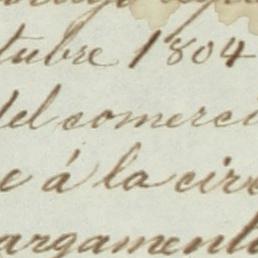 tubre 1804
del comerci
e á la circ
argamento